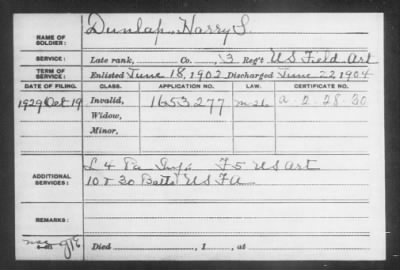 NAME OF SOLDIER: Dunlap, Harry S.
SERVICE: Late rank, Co. , 3 Reg't US Field Art
TERM OF SERVICE: Enlisted June 18, 1902 Discharged June 22 1904
DATE OF FILING. CLASS. APPLICATION NO. LAW. CERTIFICATE NO.
1929 Oct 19 Invalid, 1653277 a-2-28-30
Widow,
Minor,
ADDITIONAL SERVICES: L 4 Pa Inf. F 5 US Art
10 & 30 Batts US FA
REMARKS:
Died , 1 , at